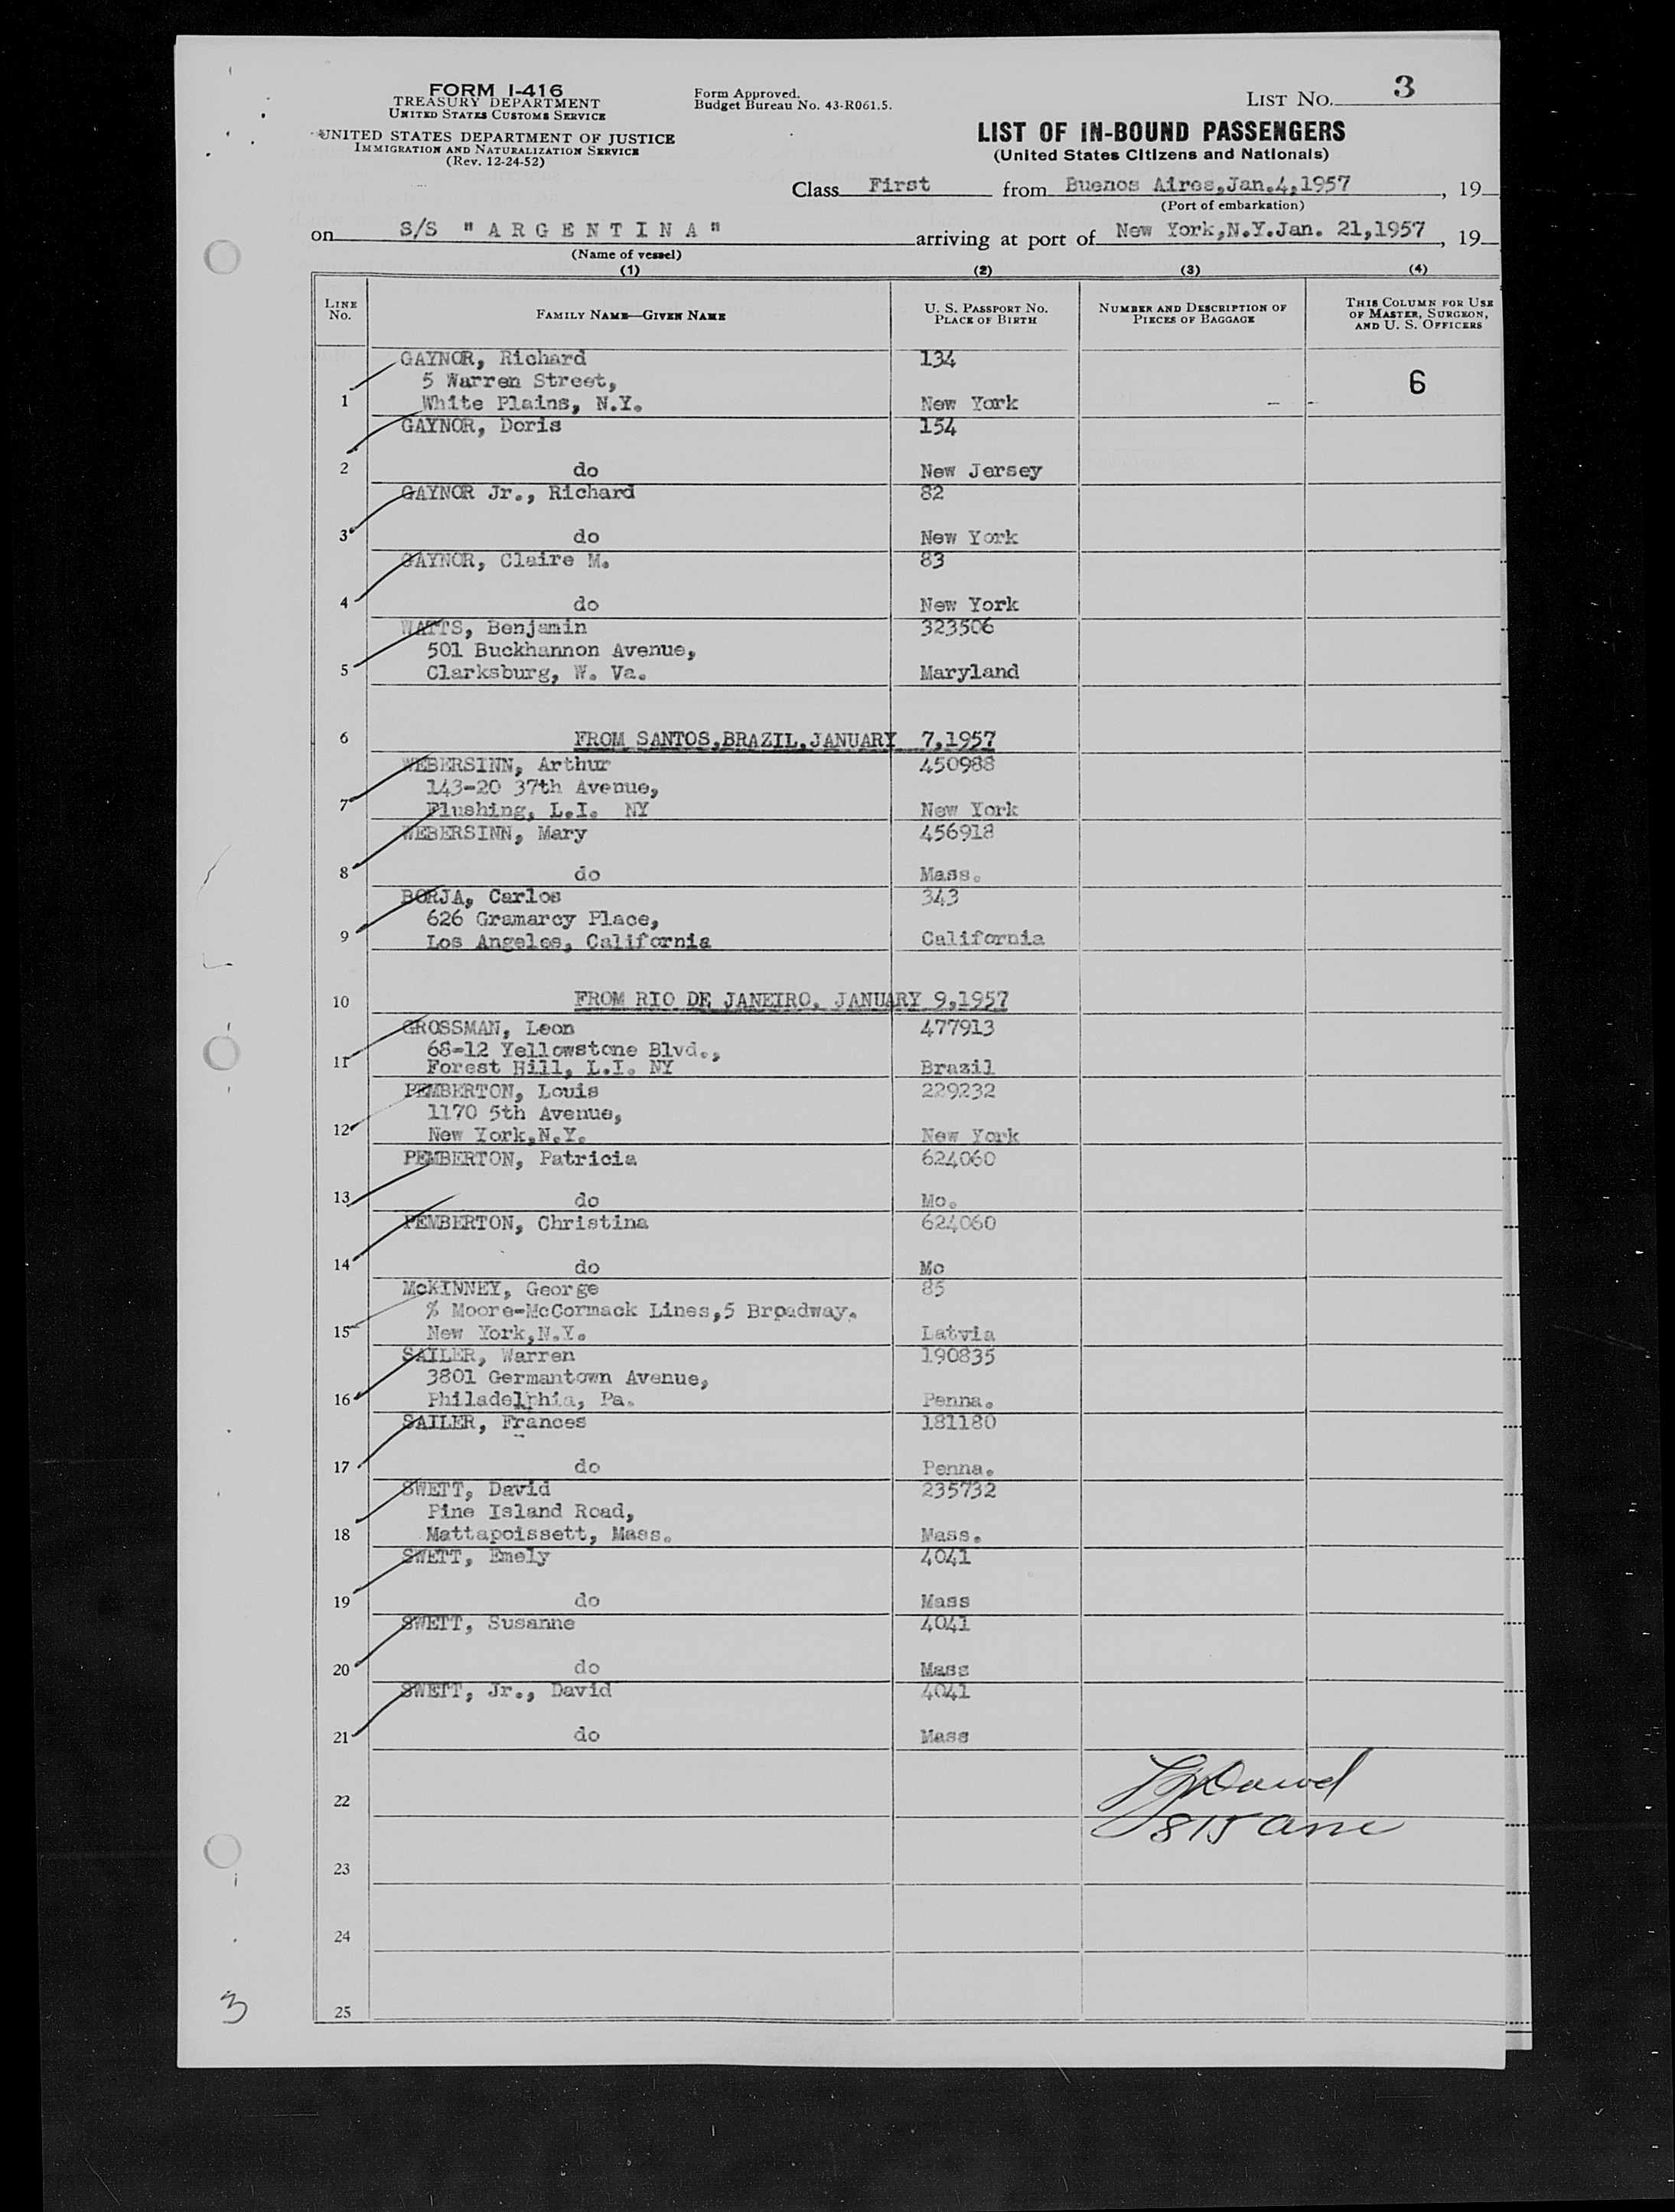 FORM I-416
TREASURY DEPARTMENT
UNITED STATES CUSTOMS SERVICE
UNITED STATES DEPARTMENT OF JUSTICE
IMMIGRATION AND NATURALIZATION SERVICE
(Rev. 12-24-52)
Form Approved.
Budget Bureau No. 43-R061.5.
LIST NO. 3
LIST OF IN-BOUND PASSENGERS
(United States Citizens and Nationals)
Class First from Buenos Aires,Jan.4,1957, 19
(Port of embarkation)
on S/S "ARGENTINA" arriving at port of New York,N.Y.Jan. 21,1957, 19
(Name of vessel)
(1) (2) (3) (4)
LINE NO. FAMILY NAME—GIVEN NAME U. S. PASSPORT NO. PLACE OF BIRTH NUMBER AND DESCRIPTION OF PIECES OF BAGGAGE THIS COLUMN FOR USE OF MASTER, SURGEON, AND U. S. OFFICERS
GAYNOR, Richard 134
5 Warren Street, 6
1 White Plains, N.Y. New York
GAYNOR, Doris 154
2 do New Jersey
GAYNOR Jr., Richard 82
3 do New York
GAYNOR, Claire M. 83
4 do New York
WATTS, Benjamin 323506
501 Buckhannon Avenue,
5 Clarksburg, W. Va. Maryland
6 FROM SANTOS,BRAZIL,JANUARY 7,1957
WEBERSINN, Arthur 450988
143-20 37th Avenue,
7 Flushing, L.I. NY New York
WEBERSINN, Mary 456918
8 do Mass.
BORJA, Carlos 343
626 Gramarcy Place,
9 Los Angeles, California California
10 FROM RIO DE JANEIRO, JANUARY 9,1957
GROSSMAN, Leon 477913
68-12 Yellowstone Blvd.,
11 Forest Hill, L.I. NY Brazil
PEMBERTON, Louis 229232
1170 5th Avenue,
12 New York,N.Y. New York
PEMBERTON, Patricia 624060
13 do Mo.
PEMBERTON, Christina 624060
14 do Mo
McKINNEY, George 85
% Moore-McCormack Lines,5 Broadway.
15 New York,N.Y. Latvia
SAILER, Warren 190835
3801 Germantown Avenue,
16 Philadelphia, Pa. Penna.
SAILER, Frances 181180
17 do Penna.
SWETT, David 235732
Pine Island Road,
18 Mattapoissett, Mass. Mass.
SWETT, Emely 4041
19 do Mass
SWETT, Susanne 4041
20 do Mass
SWETT, Jr., David 4041
21 do Mass
22
815
23
24
25
3